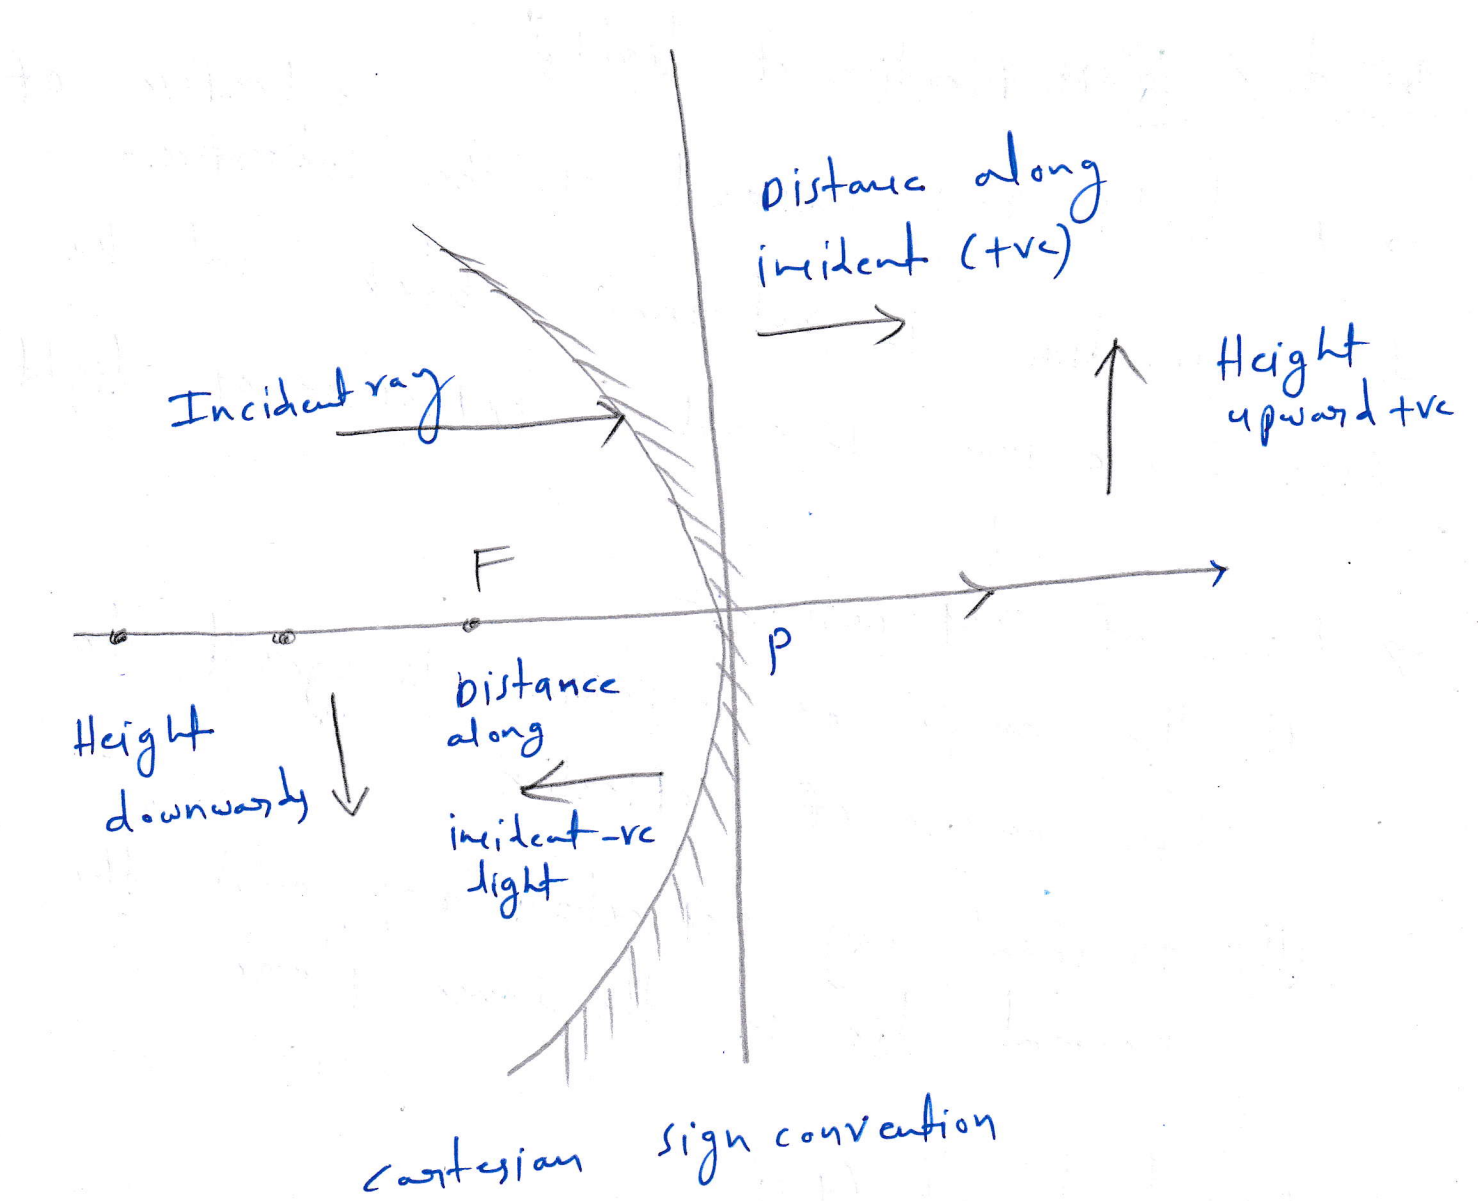 Distance along
incident (+ve)
Height
upward +ve
Incident ray
F
P
Distance
along
incident -ve
light
Height
downwards
cartesian sign convention